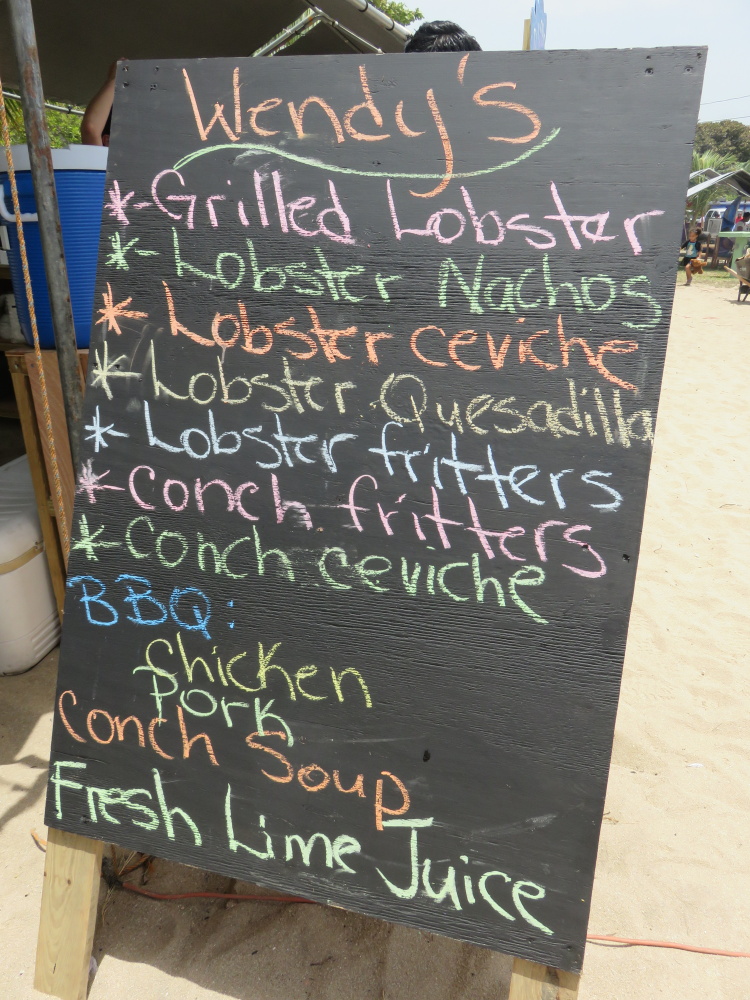 Wendy's
*-Grilled Lobster
*-Lobster Nachos
* Lobster ceviche
*-Lobster Quesadilla
*-Lobster fritters
*-conch fritters
*-conch ceviche
BBQ:
chicken
Pork
conch Soup
Fresh Lime Juice